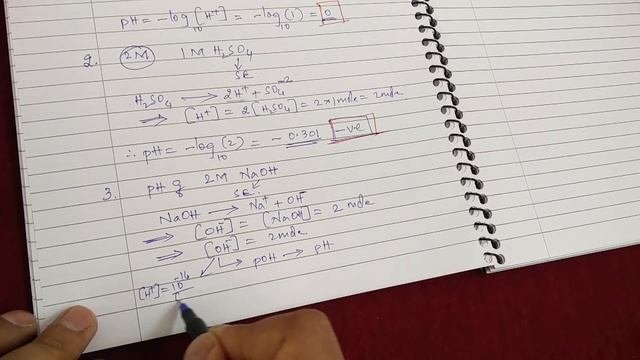 pH = -log₁₀[H⁺] = -log₁₀(1) = 0
2. 2M 1 M H₂SO₄
SE
H₂SO₄ → 2H⁺ + SO₄⁻²
⇒ [H⁺] = 2[H₂SO₄] = 2×1 mole = 2 mole
∴ pH = -log₁₀(2) = -0.301 -ve
3. pH of 2M NaOH
SE
NaOH → Na⁺ + OH⁻
⇒ [OH⁻] = [NaOH] = 2 mole
⇒ [OH⁻] = 2 mole
→ pOH → pH
[H⁺] = 10⁻¹⁴